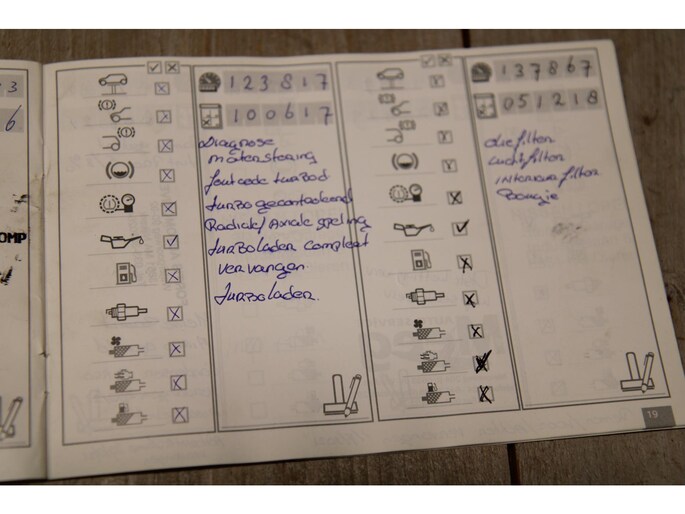 3
6
OMP
123817
100617
Diagnose
motorstoring
foutcode turbod
turbo gecontroleerd
Radiale/Axiale speling
turbolader compleet
vervangen
turbolader.
137867
051218
oliefilter
luchtfilter
interieurfilter
Bougie
19